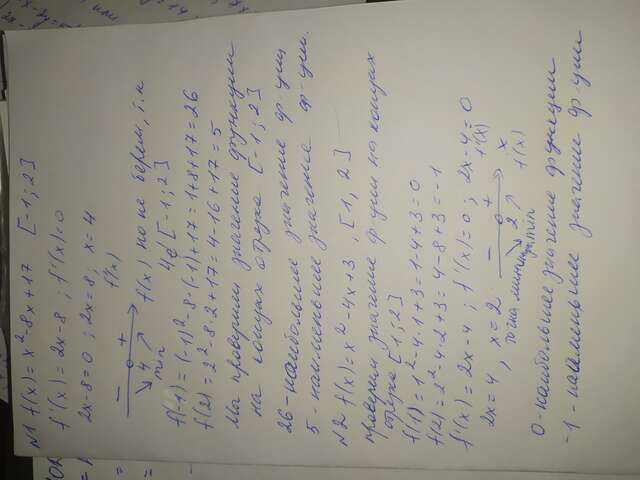 N1 f(x)=x²-8x+17 [-1;2]
f'(x)=2x-8; f'(x)=0
2x-8=0; 2x=8; x=4
f'(x)
- 0 +
4 f(x) но не берем, т.к
min 4∉[-1;2]
f(-1)=(-1)²-8·(-1)+17=1+8+17=26
f(2)=2²-8·2+17=4-16+17=5
Мы проверили значение функции
на концах отрезка [-1;2]
26-наибольшее значение ф-ции
5-наименьшее значение ф-ции.
N2 f(x)=x²-4x+3, [1,2]
проверим значение ф-ции на концах
отрезка [1;2]
f(1)=1²-4·1+3=1-4+3=0
f(2)=2²-4·2+3=4-8+3=-1
f'(x)=2x-4; f'(x)=0; 2x-4=0
2x=4, x=2. f'(x)
- 0 + x
2 f(x)
точка миним min
0-наибольшее значение функции
-1-наименьшее значение ф-ции